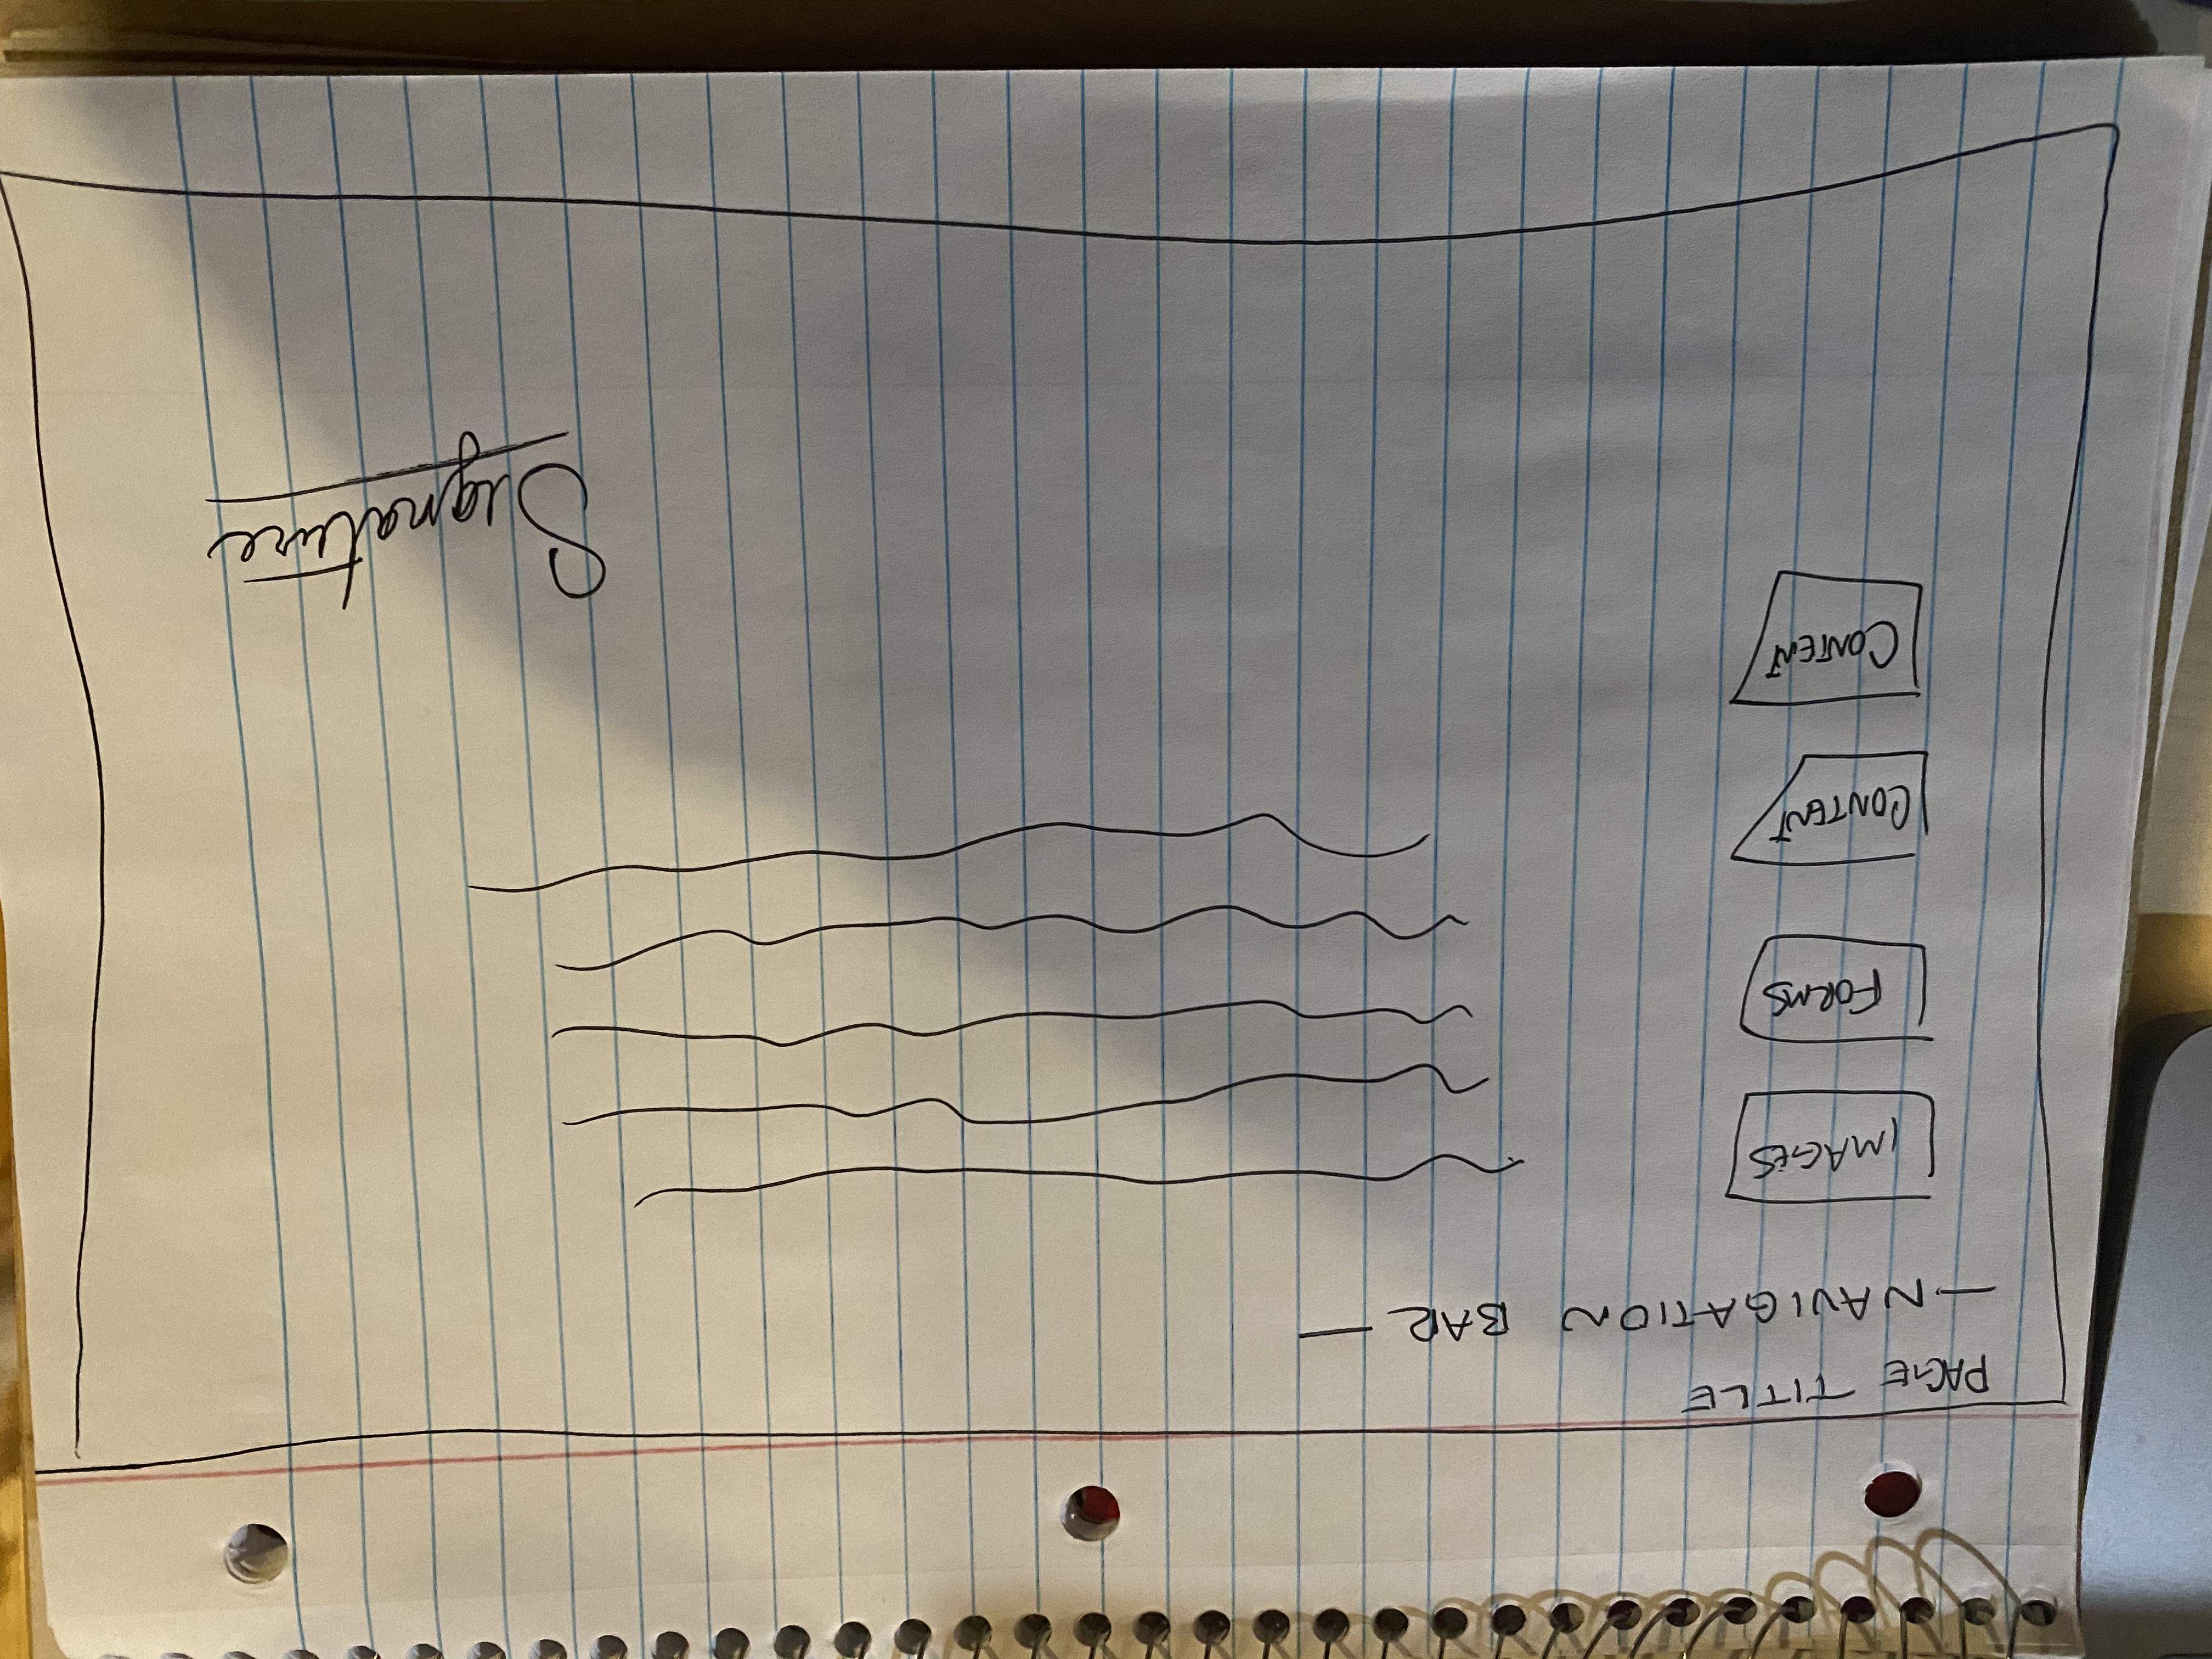 PAGE TITLE
— NAVIGATION BAR —
IMAGES
FORMS
CONTENT
CONTENT
Signature